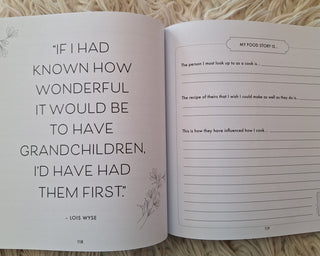 "IF I HAD
KNOWN HOW
WONDERFUL
IT WOULD BE
TO HAVE
GRANDCHILDREN,
I'D HAVE HAD
THEM FIRST."
- LOIS WYSE
118
MY FOOD STORY IS...
The person I most look up to as a cook is
The recipe of theirs that I wish I could make as well as they do is
This is how they have influenced how I cook
119